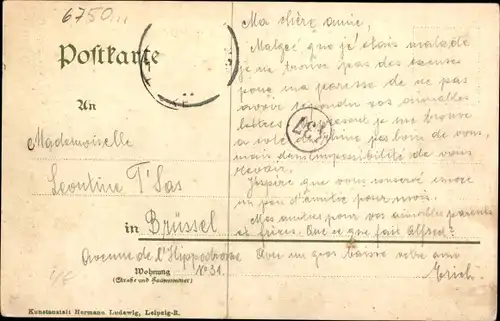 6750
Postkarte
An
Mademoiselle
Leontine T'Sas
in Brüssel
Avenue de l'Hippodrome
N° 31.
Wohnung
(Straße und Hausnummer)
Kunstanstalt Hermann Ludewig, Leipzig-R.
Ma chère amie,
Malgré que j'étais malade
je ne trouve pas des excuses
pour ma paresse de ne pas
avoir repondu vos aimables
lettres. present je me trouve
a coté pas loin de vous,
mais dans l'impossibilité de vous
revoir.
J'espère que vous conservé encore
un peu d'amitié pour moi.
Mes amitiés pour vos aimables parents
et frères. Que fait Alfred?
Avec un gros baiser votre ami
Erich.